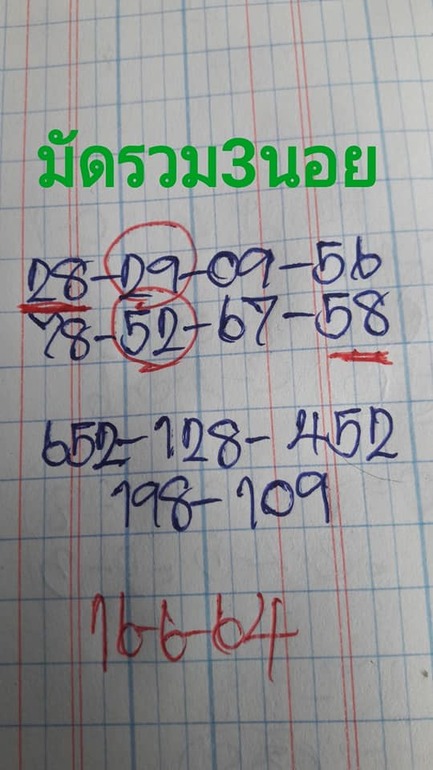 มัดรวม3นอย
28-29-09-56
78-52-67-58
652-128-452
198-109
16-6-64